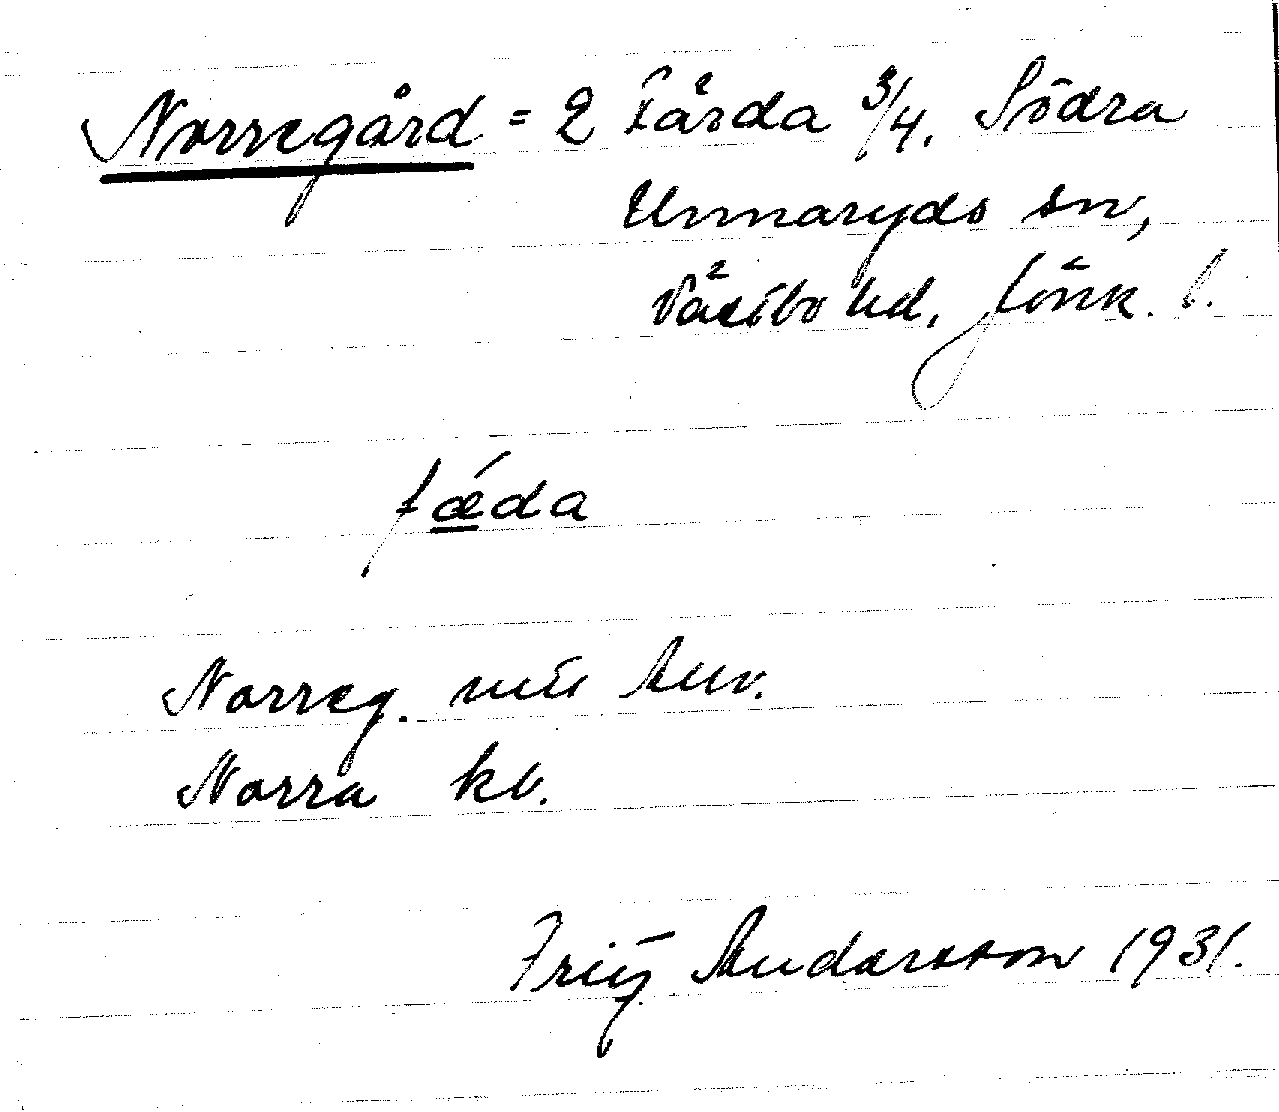 Norregård = 2 Färda 3/4. Södra
Unnaryds sn,
Västbo hd, Jönk. l.
fǽda
Norreg. nu Auv.
Norra kv.
Fritz Andersson 1931.